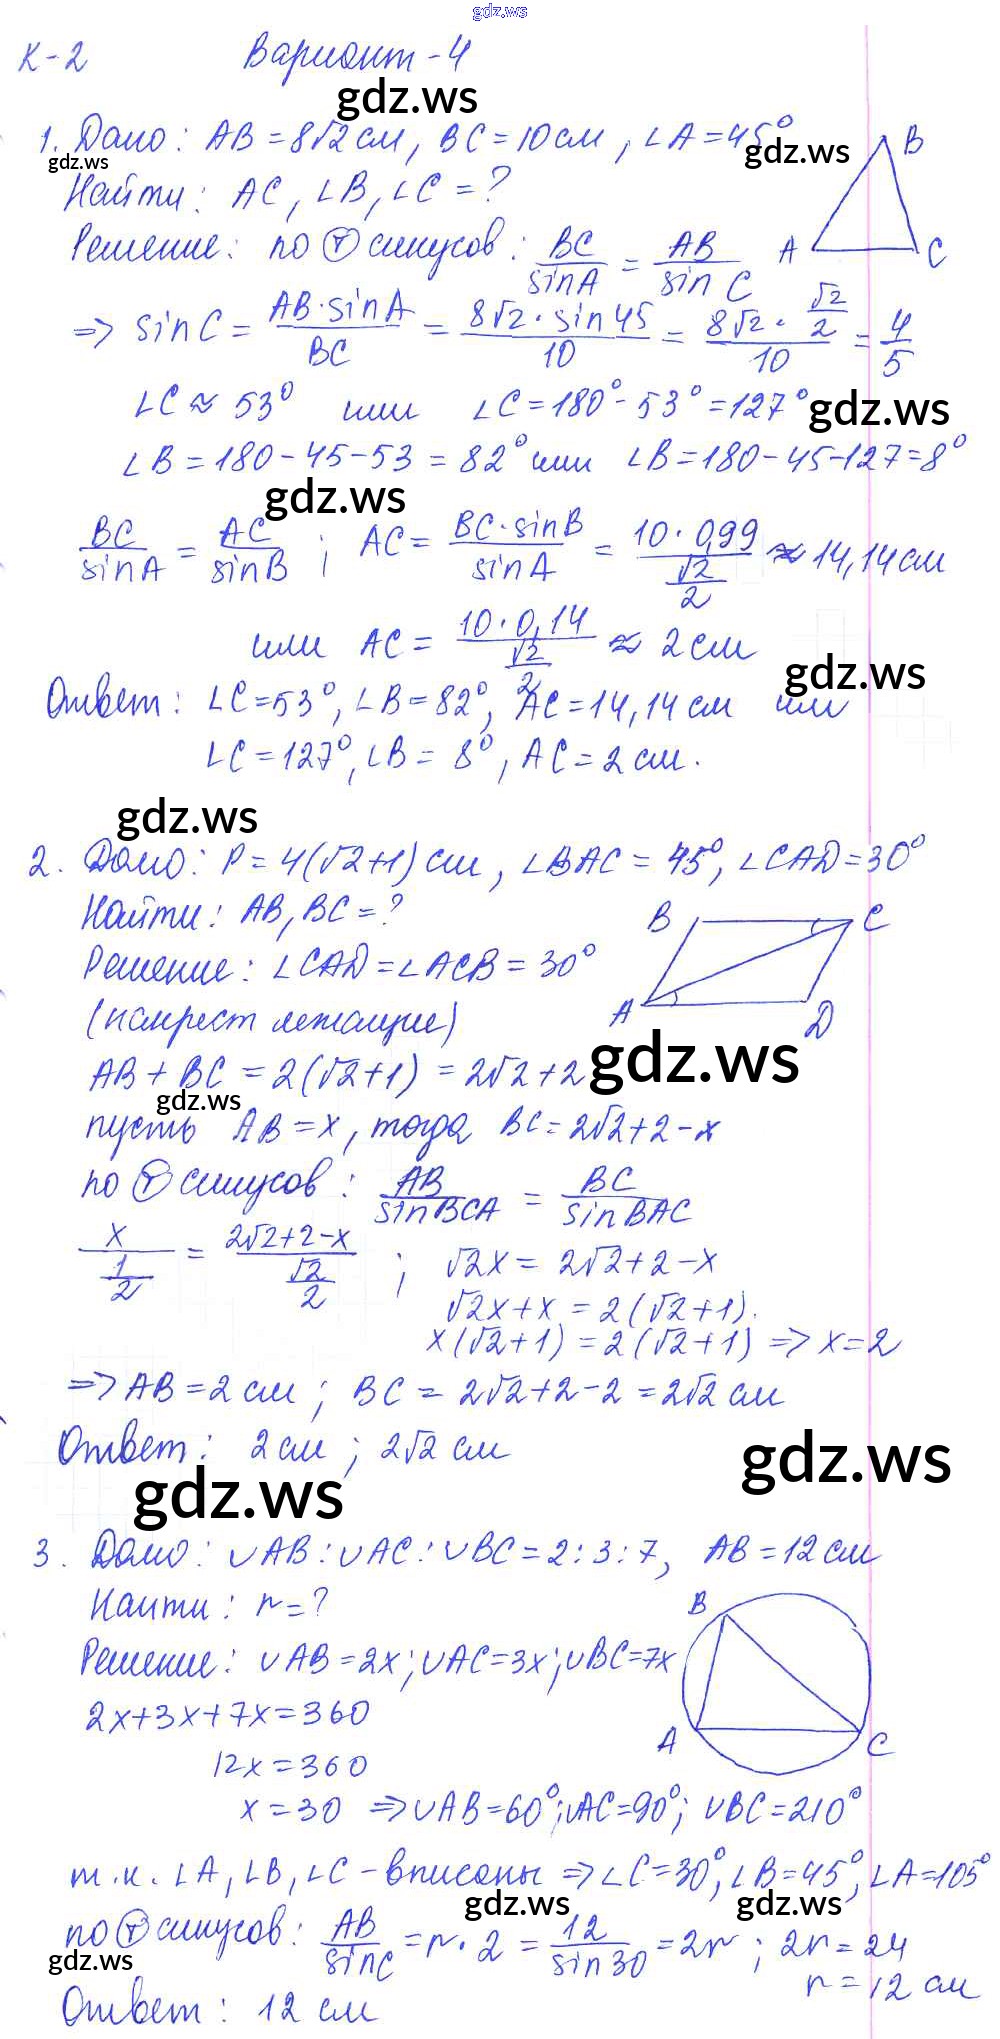 gdz.ws
К-2 Вариант-4
gdz.ws
1. Дано: AB = 8√2 см, BC = 10 см, ∠A = 45°
gdz.ws gdz.ws
B
Найти: AC, ∠B, ∠C = ?
Решение: по Ⓣ синусов: BC/sinA = AB/sin C
A C
=> sinC = AB·sinA/BC = 8√2·sin45/10 = 8√2·√2/2/10 = 4/5
∠C ≈ 53° или ∠C = 180° - 53° = 127°
gdz.ws
∠B = 180 - 45 - 53 = 82° или ∠B = 180 - 45 - 127 = 8°
gdz.ws
BC/sinA = AC/sinB ; AC = BC·sinB/sinA = 10·0,99/√2/2 ≈ 14,14 см
или AC = 10·0,14/√2/2 ≈ 2 см
gdz.ws
Ответ: ∠C = 53°, ∠B = 82°, AC = 14,14 см или
∠C = 127°, ∠B = 8°, AC = 2 см.
gdz.ws
2. Дано: P = 4(√2+1) см, ∠BAC = 45°, ∠CAD = 30°
Найти: AB, BC = ?
B C
Решение: ∠CAD = ∠ACB = 30°
A D
(накрест лежащие)
gdz.ws
AB + BC = 2(√2+1) = 2√2+2
gdz.ws
пусть AB = x, тогда BC = 2√2+2-x
по Ⓣ синусов: AB/sinBCA = BC/sinBAC
x/1/2 = 2√2+2-x/√2/2 ; √2x = 2√2+2-x
√2x + x = 2(√2+1).
x(√2+1) = 2(√2+1) => x = 2
=> AB = 2 см ; BC = 2√2+2-2 = 2√2 см
Ответ: 2 см ; 2√2 см
gdz.ws
gdz.ws
3. Дано: ∪AB : ∪AC : ∪BC = 2 : 3 : 7, AB = 12 см
Найти: r = ?
B
Решение: ∪AB = 2x; ∪AC = 3x; ∪BC = 7x
2x+3x+7x = 360
A C
12x = 360
x = 30 => ∪AB = 60°; ∪AC = 90°; ∪BC = 210°
т.к. ∠A, ∠B, ∠C - вписаны => ∠C = 30°, ∠B = 45°, ∠A = 105°
gdz.ws gdz.ws
по Ⓣ синусов: AB/sinC = r·2 = 12/sin30 = 2r ; 2r = 24
gdz.ws
r = 12 см
Ответ: 12 см